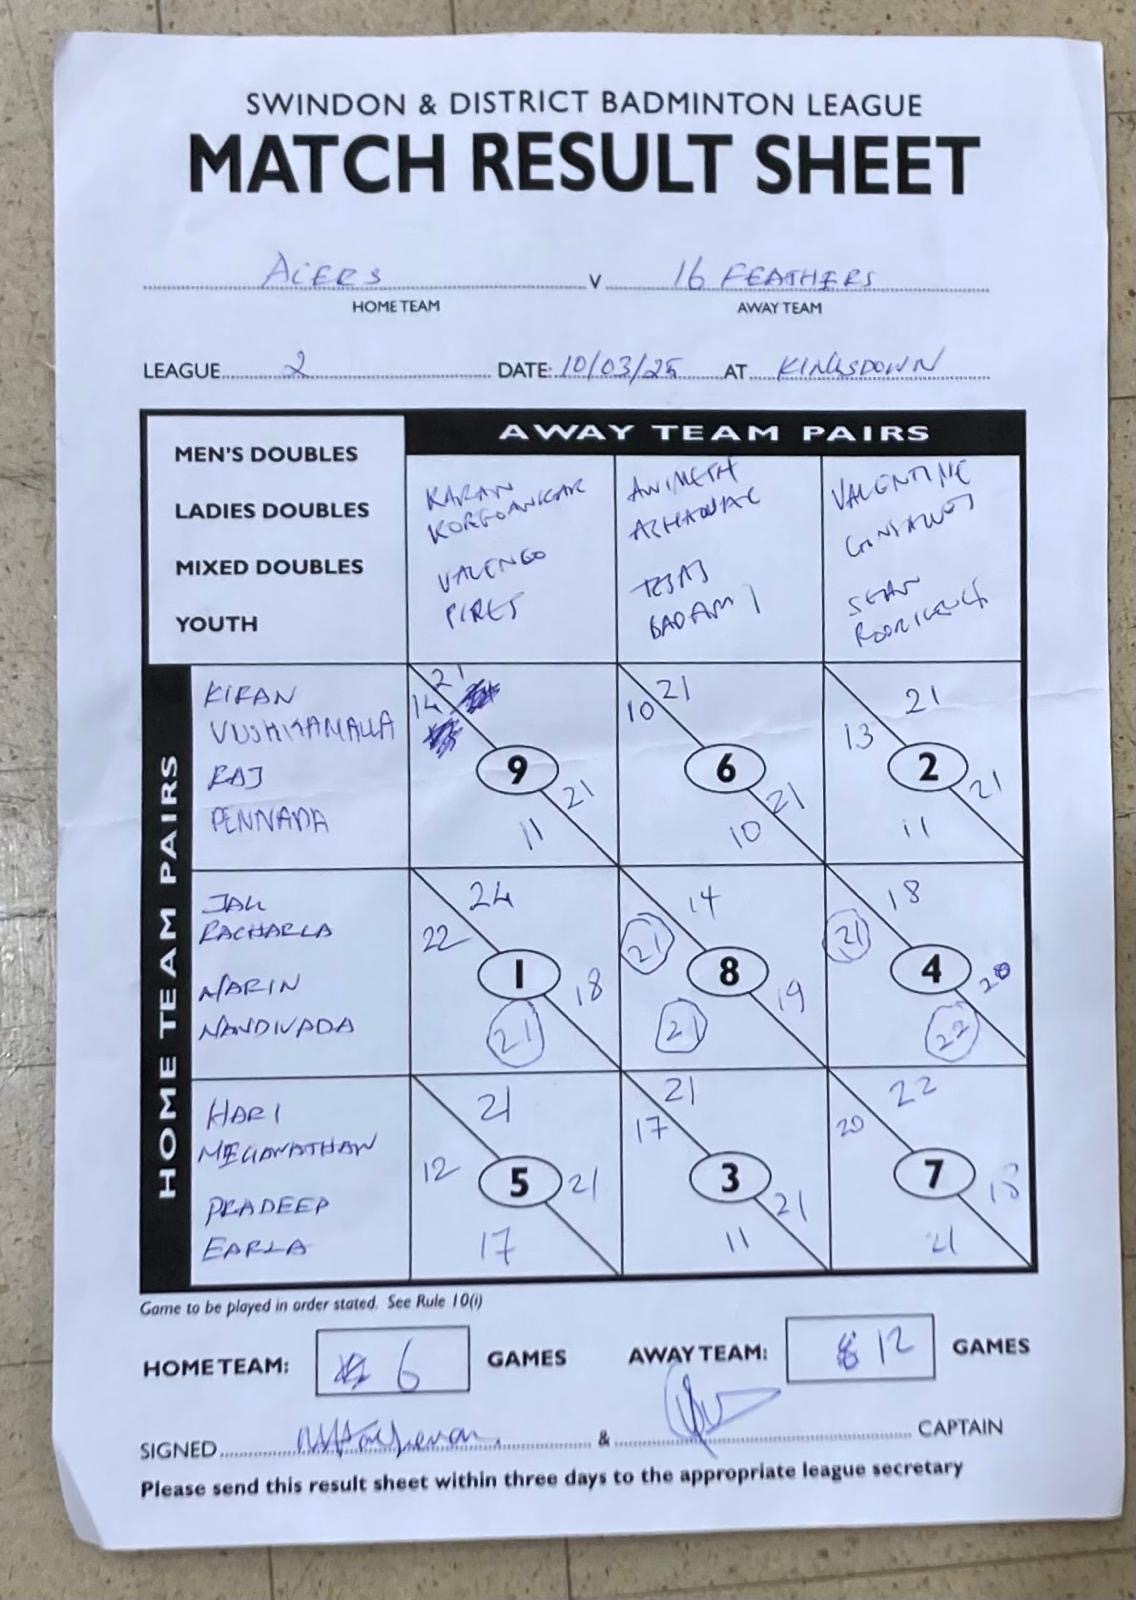 SWINDON & DISTRICT BADMINTON LEAGUE
MATCH RESULT SHEET
ACERS v 16 FEATHERS
HOME TEAM AWAY TEAM
LEAGUE 2 DATE: 10/03/25 AT KINGSDOWN
AWAY TEAM PAIRS
MEN'S DOUBLES
LADIES DOUBLES
MIXED DOUBLES
YOUTH
KARAN
KORGOANKAR
VALENGO
PIRES
ANIMETH
BADAMI
VALENTINE
SEAN
HOME TEAM PAIRS
KIRAN
RAJ
PENNADA
21 21 21
14 10 13
9 6 2
21 21 21
11 10 11
RACHARLA
NANDIVADA
24 14 18
22 21 21
1 8 4
18 19 20
21 21 22
HARI
MEGANATHAN
PRADEEP
EARLA
21 21 22
12 17 20
5 3 7
21 21 18
17 11 21
Game to be played in order stated. See Rule 10(i)
HOME TEAM: 6 GAMES AWAY TEAM: 12 GAMES
SIGNED & CAPTAIN
Please send this result sheet within three days to the appropriate league secretary